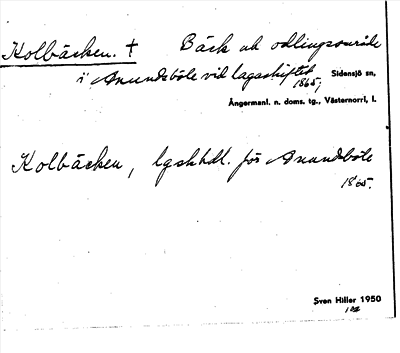 Kolbäcken. † Bäck och odlingsområde
i Anundsböle vid lagaskiftet
1865; Sidensjö sn,
Ångermanl. n. doms. tg., Västernorrl, l.
Kolbäcken, lgskhdl. för Anundsböle
1865.
Sven Hiller 1950